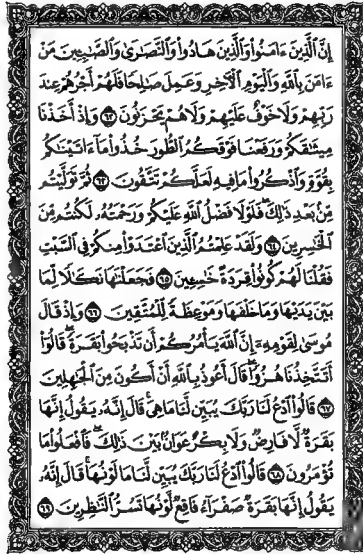 إِنَّ ٱلَّذِينَ ءَامَنُواْ وَٱلَّذِينَ هَادُواْ وَٱلنَّصَٰرَىٰ وَٱلصَّٰبِـِٔينَ مَنۡ
ءَامَنَ بِٱللَّهِ وَٱلۡيَوۡمِ ٱلۡأٓخِرِ وَعَمِلَ صَٰلِحٗا فَلَهُمۡ أَجۡرُهُمۡ عِندَ
رَبِّهِمۡ وَلَا خَوۡفٌ عَلَيۡهِمۡ وَلَا هُمۡ يَحۡزَنُونَ ٦٢ وَإِذۡ أَخَذۡنَا
مِيثَٰقَكُمۡ وَرَفَعۡنَا فَوۡقَكُمُ ٱلطُّورَ خُذُواْ مَآ ءَاتَيۡنَٰكُم
بِقُوَّةٖ وَٱذۡكُرُواْ مَا فِيهِ لَعَلَّكُمۡ تَتَّقُونَ ٦٣ ثُمَّ تَوَلَّيۡتُم
مِّنۢ بَعۡدِ ذَٰلِكَۖ فَلَوۡلَا فَضۡلُ ٱللَّهِ عَلَيۡكُمۡ وَرَحۡمَتُهُۥ لَكُنتُم مِّنَ
ٱلۡخَٰسِرِينَ ٦٤ وَلَقَدۡ عَلِمۡتُمُ ٱلَّذِينَ ٱعۡتَدَوۡاْ مِنكُمۡ فِي ٱلسَّبۡتِ
فَقُلۡنَا لَهُمۡ كُونُواْ قِرَدَةً خَٰسِـِٔينَ ٦٥ فَجَعَلۡنَٰهَا نَكَٰلٗا لِّمَا
بَيۡنَ يَدَيۡهَا وَمَا خَلۡفَهَا وَمَوۡعِظَةٗ لِّلۡمُتَّقِينَ ٦٦ وَإِذۡ قَالَ
مُوسَىٰ لِقَوۡمِهِۦٓ إِنَّ ٱللَّهَ يَأۡمُرُكُمۡ أَن تَذۡبَحُواْ بَقَرَةٗۖ قَالُوٓاْ
أَتَتَّخِذُنَا هُزُوٗاۖ قَالَ أَعُوذُ بِٱللَّهِ أَنۡ أَكُونَ مِنَ ٱلۡجَٰهِلِينَ
٦٧ قَالُواْ ٱدۡعُ لَنَا رَبَّكَ يُبَيِّن لَّنَا مَا هِيَۚ قَالَ إِنَّهُۥ يَقُولُ إِنَّهَا
بَقَرَةٞ لَّا فَارِضٞ وَلَا بِكۡرٌ عَوَانُۢ بَيۡنَ ذَٰلِكَۖ فَٱفۡعَلُواْ مَا
تُؤۡمَرُونَ ٦٨ قَالُواْ ٱدۡعُ لَنَا رَبَّكَ يُبَيِّن لَّنَا مَا لَوۡنُهَاۚ قَالَ إِنَّهُۥ
يَقُولُ إِنَّهَا بَقَرَةٞ صَفۡرَآءُ فَاقِعٞ لَّوۡنُهَا تَسُرُّ ٱلنَّٰظِرِينَ ٦٩